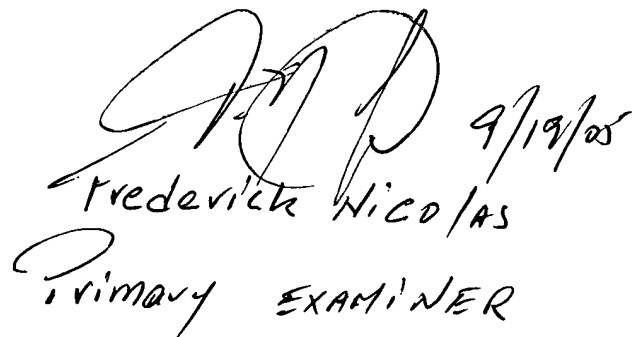 9/19/05
Frederick Nicolas
Primary EXAMINER